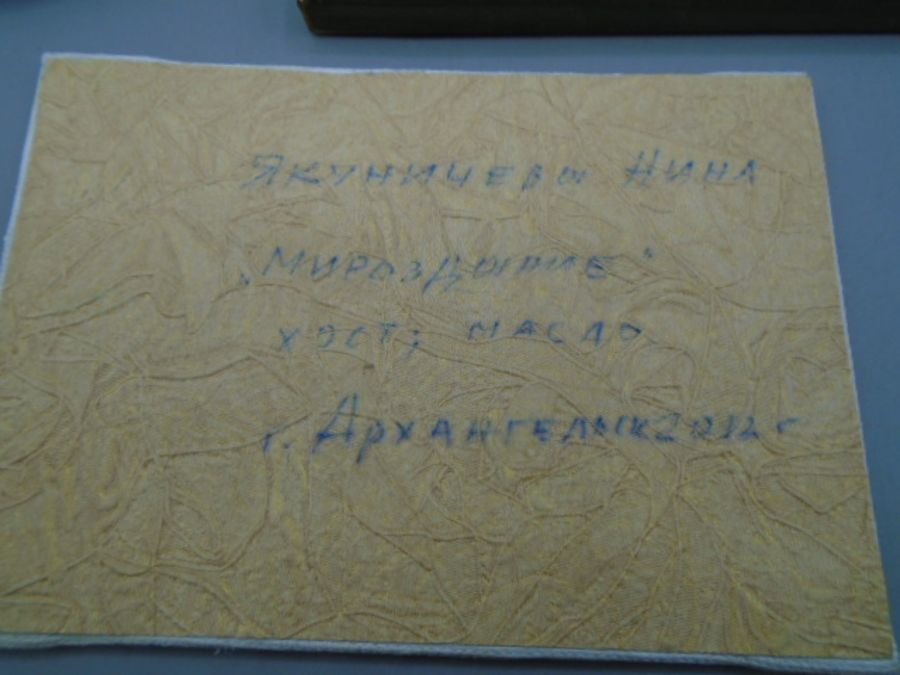 Якуничева Нина
„Мироздание"
холст, масло
г. Архангельск 2012 г